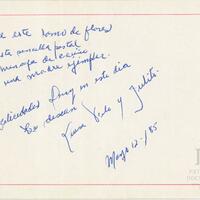 e este ramo de flores
sta sencilla postal
mensaje de cariño
una madre ejemplar.
elicidades Dios en este día
te desean
y Julito
Mayo 12-/85